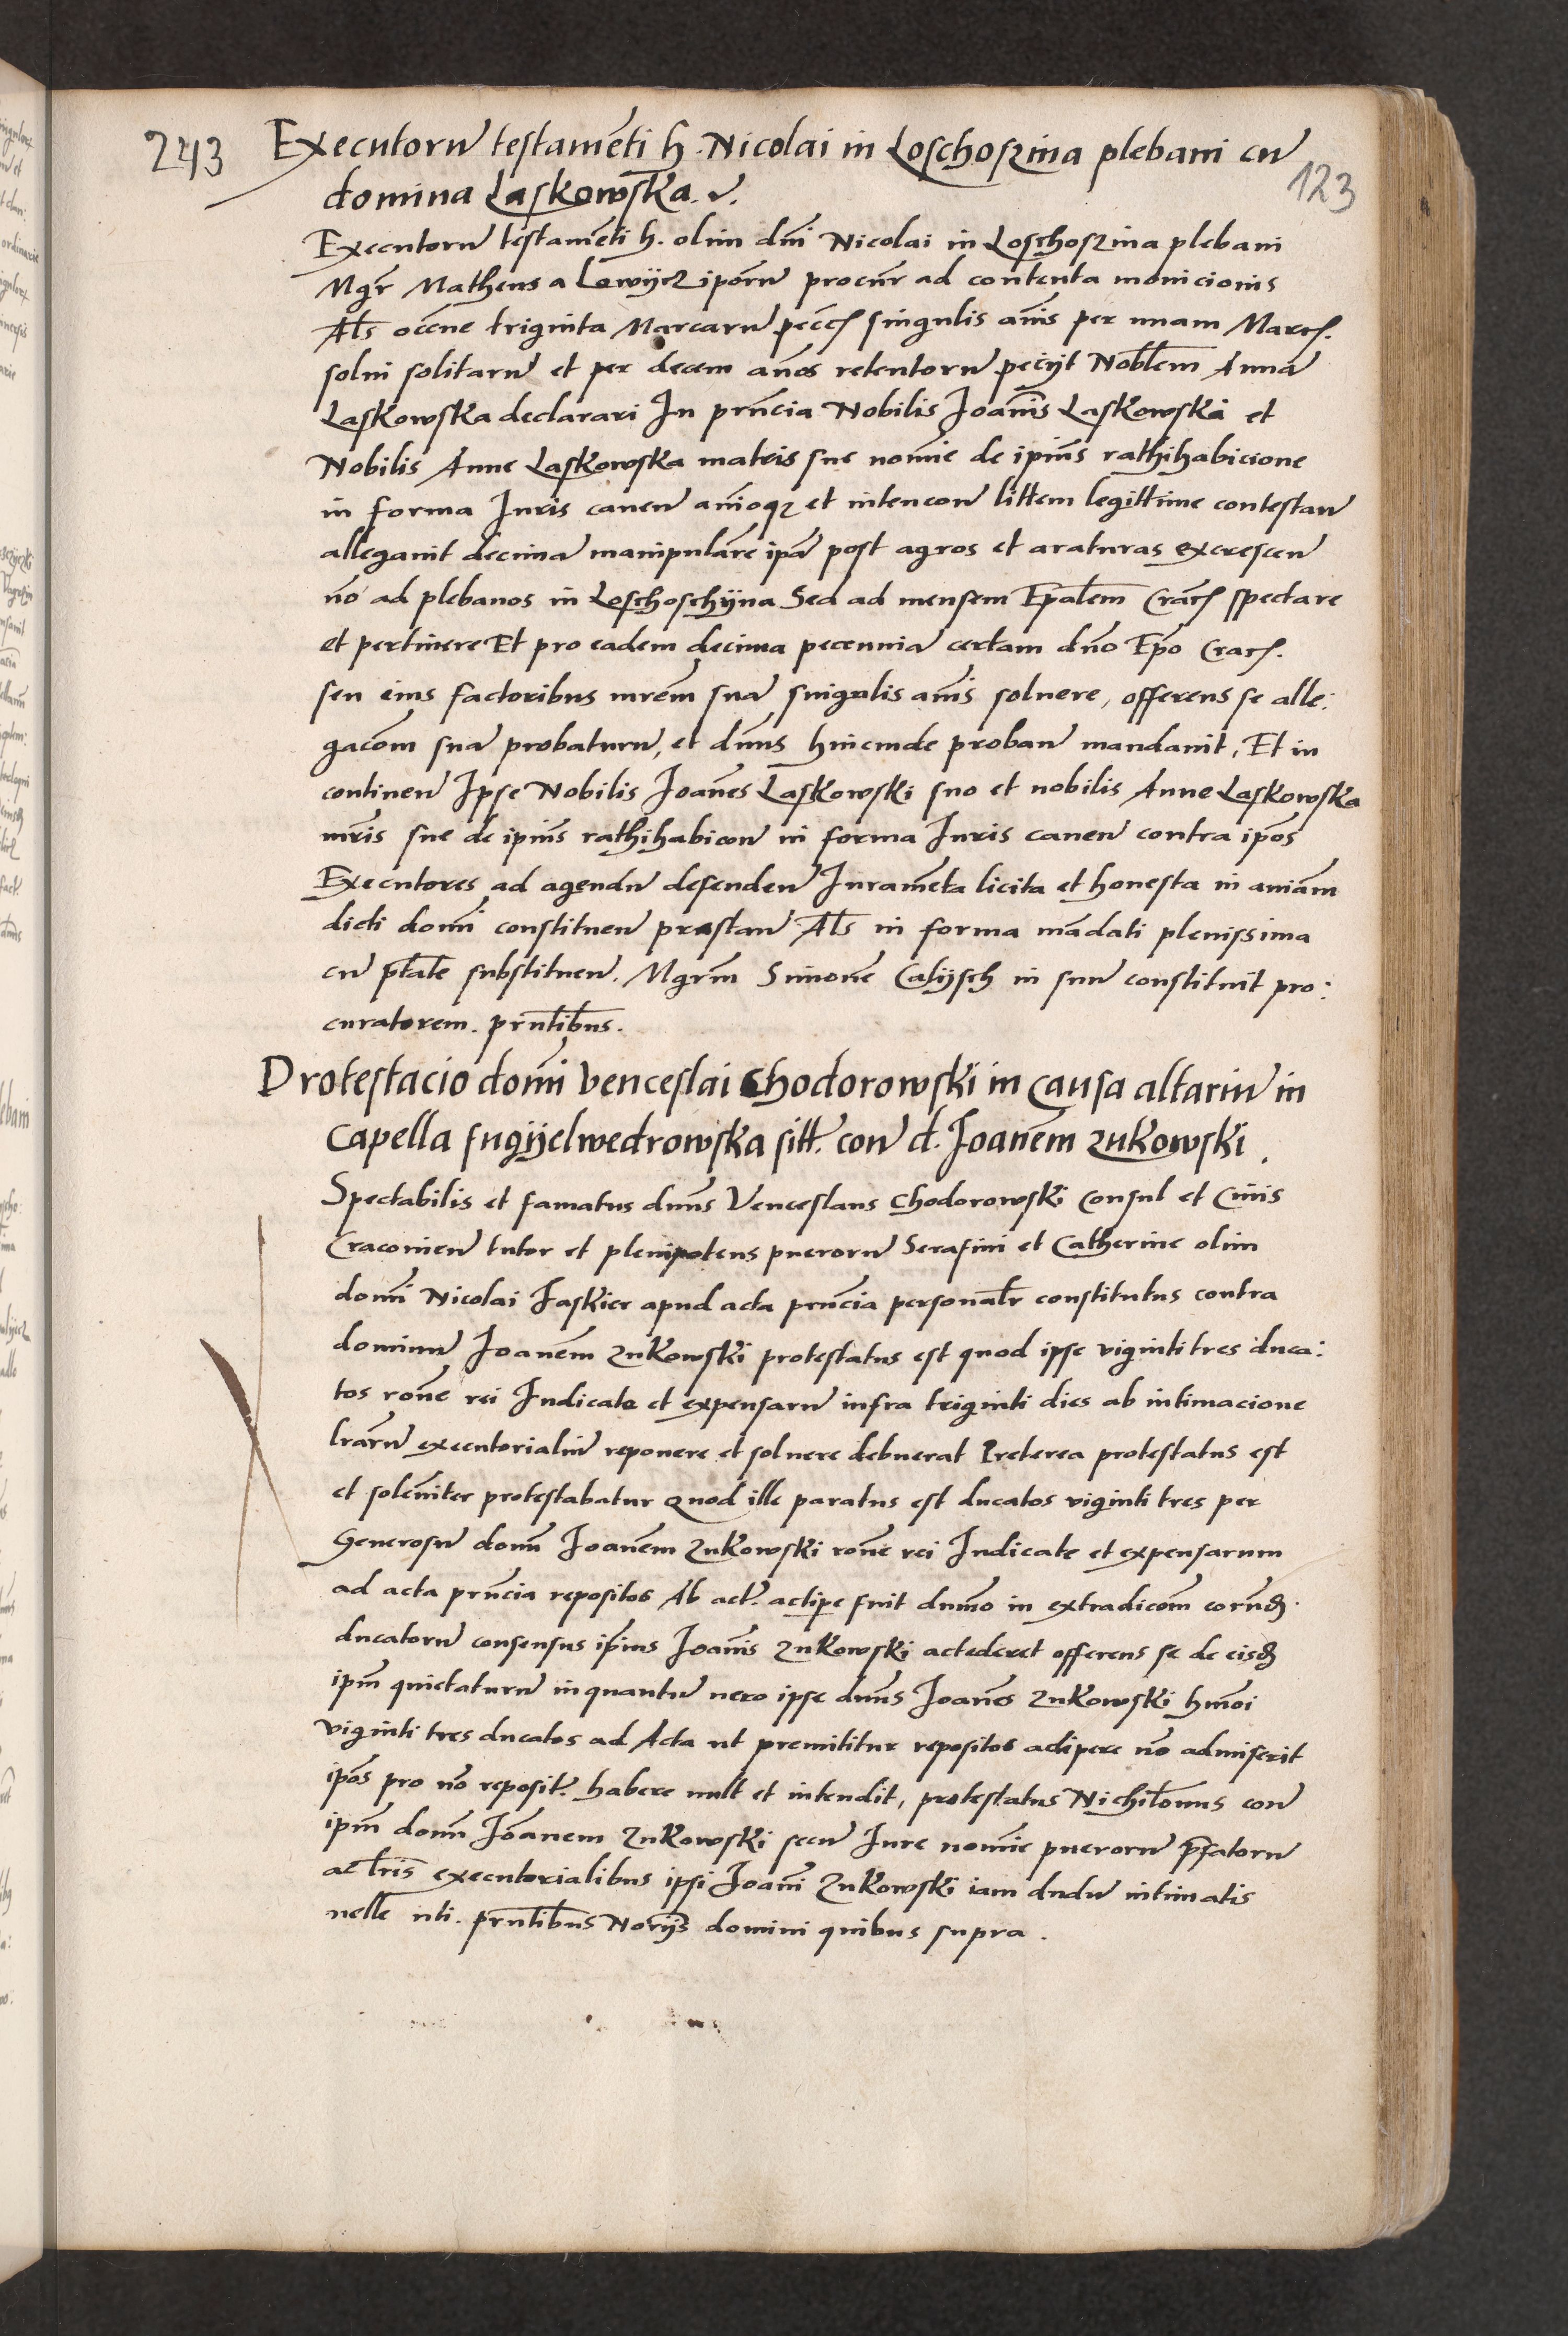 243 Executorũ testamẽti h. Nicolai in Loschoszina plebani cũ
123
domina Laskowska. v.
Executorũ testamẽti h. olim dñi Nicolai in Loschoszina plebani
Mgr̃ Matheus a Lowijcz ipõrũ procur̃ ad contenta monicionis
Al̃s occñe triginta Marcarũ pecc̃ singulis añis per unam Marc̃.
solui solitarũ et per decem años retentorũ pecijt Nob̃lem Annã
Laskowska declarari In pñcia Nobilis Ioañis Laskowski et
Nobilis Anne Laskowska matris sue nomĩe de ipĩus rathihabicione
in forma Iuris cauen̄ amĩoqz et intencoñ littem legittime contestan̄
allegauit decimã manipularẽ ipã post agros et araturas excrescen̄
nõ ad plebanos in Loschoschijna Sed ad mensem Epãlem Crac̃ spectare
et pertinere Et pro eadem decima pecunniã certam dño Epõ Crac̃.
seu eius factoribus mrẽm suã singulis añis soluere, offerens se alle:
gacõm suã probaturũ, et dñus hincinde proban̄ mandauit, Et in
continen̄ Ipse Nobilis Ioañes Laskowski suo et nobilis Anne Laskowska
mr̃is sue de ipĩus rathihabicoñ in forma Iuris cauen̄ contra ipõs
Executores ad agendũ defenden̄ Iuramẽta licita et honesta in aniãm
dicti domĩ constituen̄ prestan̄ Al̃s in forma mãdati plenissima
cũ ptãte substituen̄. Mgrũm Simonẽ Calijsch in suũ constituit pro:
curatorem. pñtibus.
Protestacio domĩ Venceslai Chodorowski in causa altariũ in
Capella fugijelwedrowska sitt. con̄ d. Ioañem Zukowski.
Spectabilis et famatus dñus Venceslaus Chodorowski Consul et Ciuis
Cracouien̄ tutor et plenipotens puerorũ Serafini et Catherine olim
domĩ Nicolai Jaskier apud acta pñcia personal̃r constitutus contra
dominũ Ioañem Zukowski protestatus est quod ipse viginti tres duca:
tos roñe rei Iudicate et expensarũ infra triginti dies ab intimacione
lr̃arũ executorialiũ reponere et soluere debuerat Preterea protestatus est
et solẽniter protestabatur Quod ille paratus est ducatos viginti tres per
Generosũ domĩ Ioañem Zukowski roñe rei Iudicate et expensarum
ad acta pñcia repositos Ab act. accipe fuit dumõ in extradicõm eorund.
ducatorũ consensus ipĩus Ioañis Zukowski accederet offerens se de eisd
ipm̃ quietaturũ inquantũ uero ipse dñus Ioañes Zukowski hmõi
viginti tres ducatos ad Acta ut premititur repositos accipere nõ admiserit
ipõs pro nõ reposit. habere uult et intendit, protestatus Nichilõmus con̄
ipm̃ domĩ Ioãnem Zukowski secũ Iure nomĩe puerorũ pr̃fatorũ
ac lr̃is executorialibus ipsi Ioañi Zukowski iam dudũ intimatis
uelle uti. pñtibus Norijs domini quibus supra.